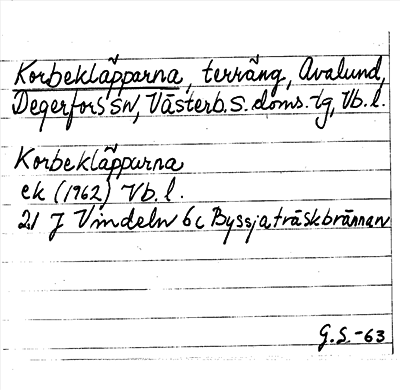 Korbekläpparna, terräng, Avalund,
Degerfors sn, Västerb. s. doms. tg, Vb. l.
Korbekläpparna
ek (1962) Vb. l.
21 J Vindeln 6c Byssjaträskbrännan
G.S.-63